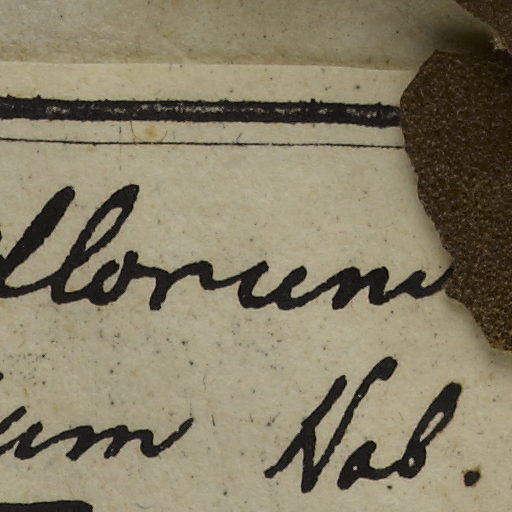 llorum
um Nab.